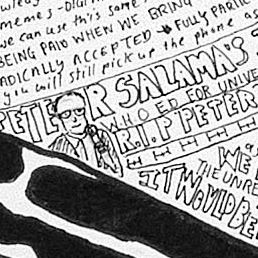 memes - DIGI
we can use this same
BEING PAID WHEN WE BRING
RADICALLY ACCEPTED → FULLY PARTIC
you will still pick up the phone
PETER SALAMA'S
WHO ED FOR UNIVE
R.I.P PETER
WE
THE UNRE
IT WOULD BE